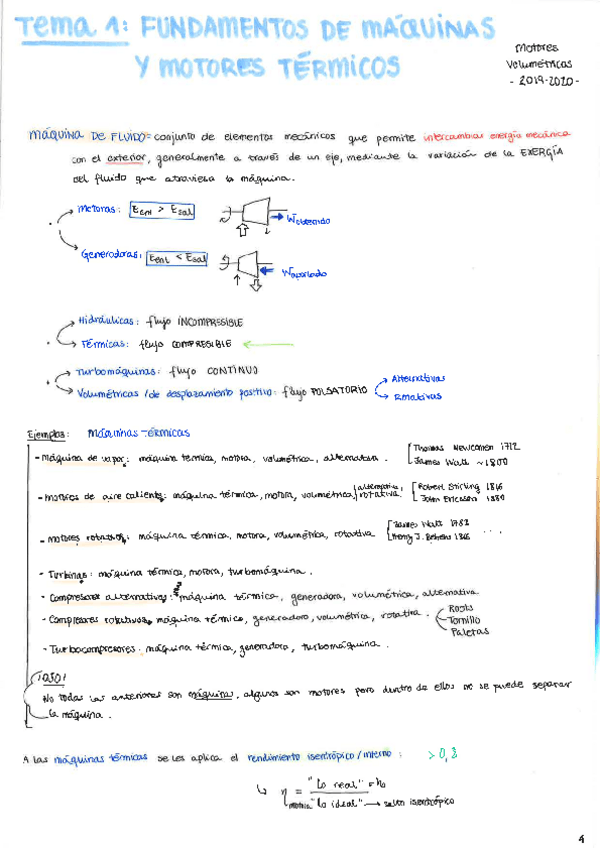 Tema 1: FUNDAMENTOS DE MÁQUINAS
Y MOTORES TÉRMICOS
Motores
Volumétricos
- 2019-2020 -
MÁQUINA DE FLUIDO = conjunto de elementos mecánicos que permite intercambiar energía mecánica
con el exterior, generalmente a través de un eje, mediante la variación de la EXERGÍA
del fluido que atraviesa la máquina.
Motoras: Eent > Esal
Wobtenido
Generadoras: Eent < Esal
Waportado
Hidráulicas: flujo INCOMPRESIBLE
Térmicas: flujo COMPRESIBLE
Turbomáquinas: flujo CONTINUO
Volumétricas / de desplazamiento positivo: flujo PULSATORIO
Alternativas
Rotativas
Ejemplos: Máquinas térmicas
- Máquina de vapor: máquina térmica, motora, volumétrica, alternativa.
Thomas Newcomen 1712
James Watt ~1800
- Motores de aire caliente: máquina térmica, motora, volumétrica, alternativa rotativa
Robert Stirling 1816
John Ericsson
- Motores rotativos: máquina térmica, motora, volumétrica, rotativa
James Watt 1782
Henry J. Behrens
...
- Turbinas: máquina térmica, motora, turbomáquina.
- Compresores alternativos: máquina térmica, generadora, volumétrica, alternativa
- Compresores rotativos: máquina térmica, generadora, volumétrica, rotativa.
Roots
Tornillo
Paletas
- Turbocompresores: máquina térmica, generadora, turbomáquina.
¡OJO!
No todas las anteriores son máquinas, algunas son motores pero dentro de ellos no se puede separar
la máquina.
A las máquinas térmicas se les aplica el rendimiento isentrópico / interno:
η = "lo real"
"lo ideal" → salto isentrópico
4